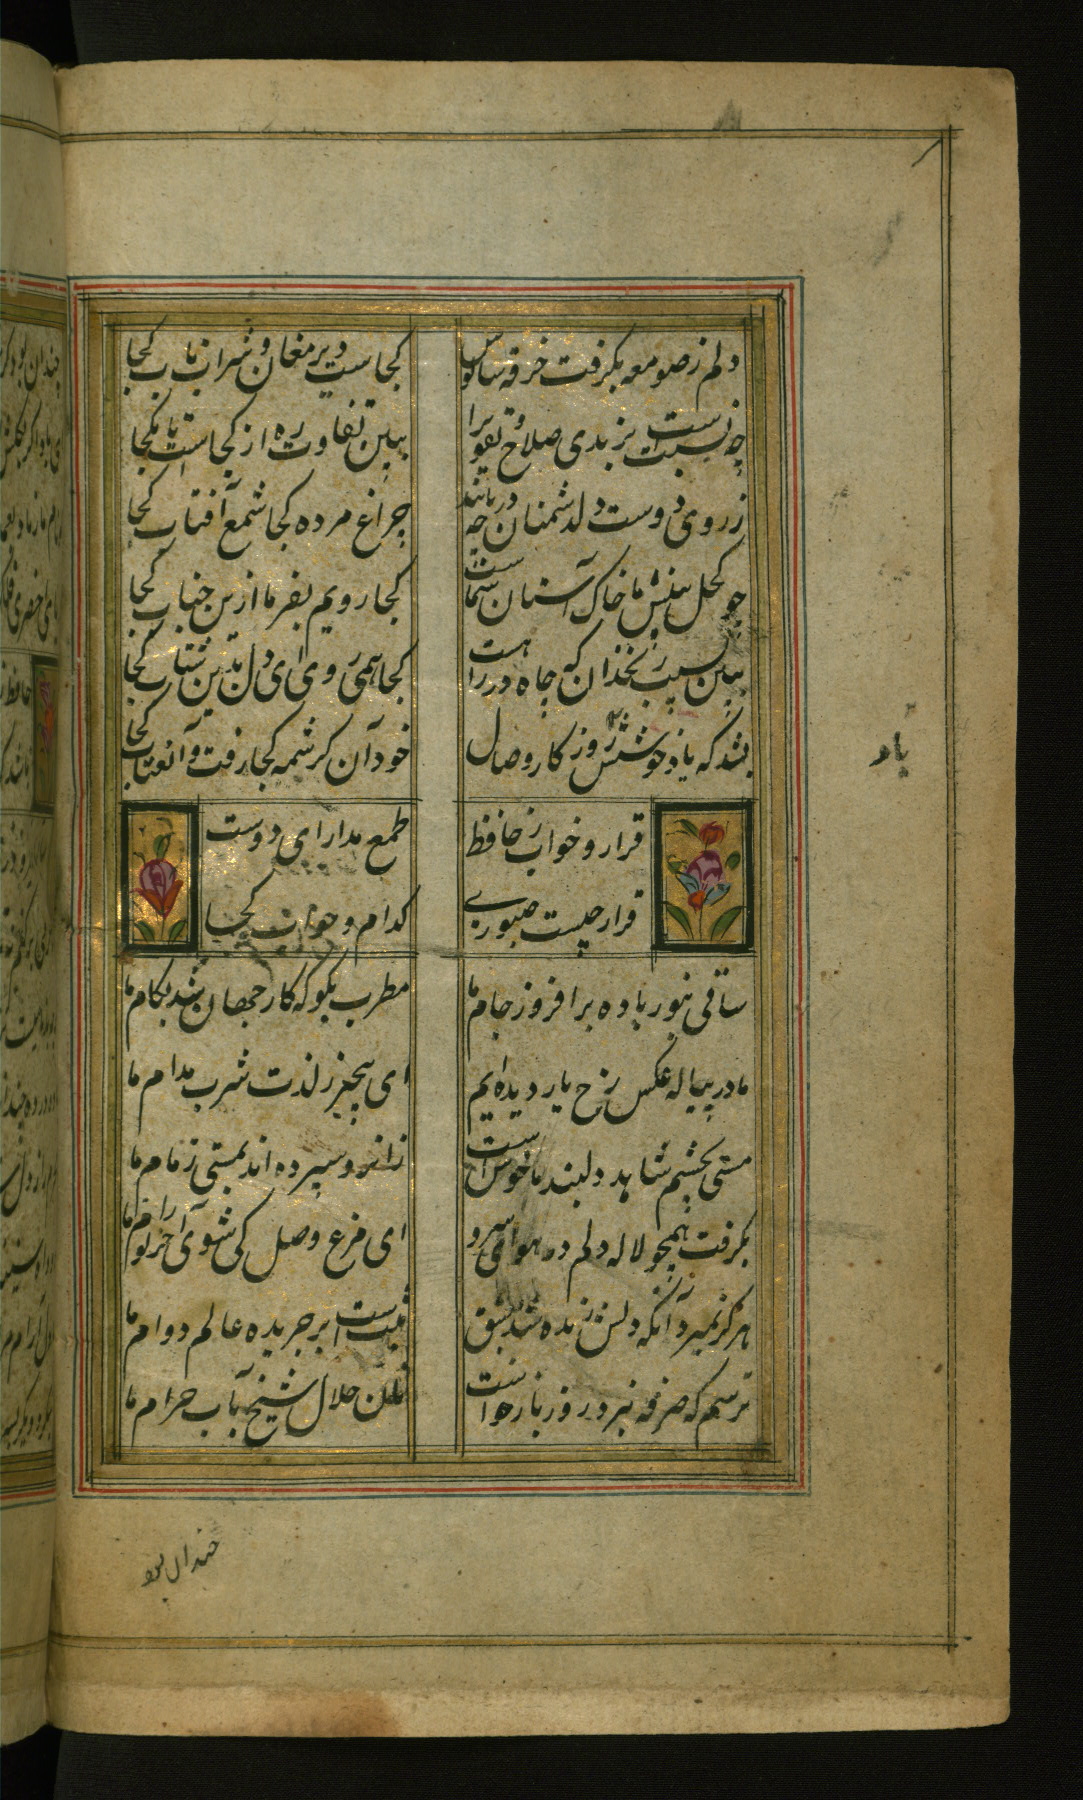 دلم ز صومعه بگرفت خرقه سالوس
کجاست دیر مغان و شراب ناب کجا
چه نسبت است برندی صلاح و تقوی را
ببین تفاوت ره از کجاست تا بکجا
ز روی دوست دل دشمنان چه دریابد
چراغ مرده کجا شمع آفتاب کجا
چو کحل بینش ما خاک آستان شماست
کجا رویم بفرما ازین جناب کجا
ببین بسیب زنخدان که چاه در راهست
کجا همی روی ای دل بدین شتاب کجا
بشد که یاد خوشش روزکار وصال
خود آن کرشمه کجا رفت و آن عتاب کجا
قرار و خواب ز حافظ
طمع مدار ای دوست
قرار چیست صبوری
کدام و خواب کجا
ساقی بنور باده برافروز جام ما
مطرب بکو که کار جهان شد بکام ما
ما در پیاله عکس رخ یار دیده ایم
ای بیخبر ز لذت شرب مدام ما
مستی بچشم شاهد دلبند ما خوش است
زانرو سپرده اند بمستی زمام ما
بگرفت همچو لاله دلم در هوای سرو
ای مرغ وصل کی شوی آخر تو رام ما
هرگز نمیرد آنکه دلش زنده شد بعشق
ثبت است بر جریده عالم دوام ما
ترسم که صرفه نبرد روز بازخواست
نان حلال شیخ ز آب حرام ما
باد
چندان بود